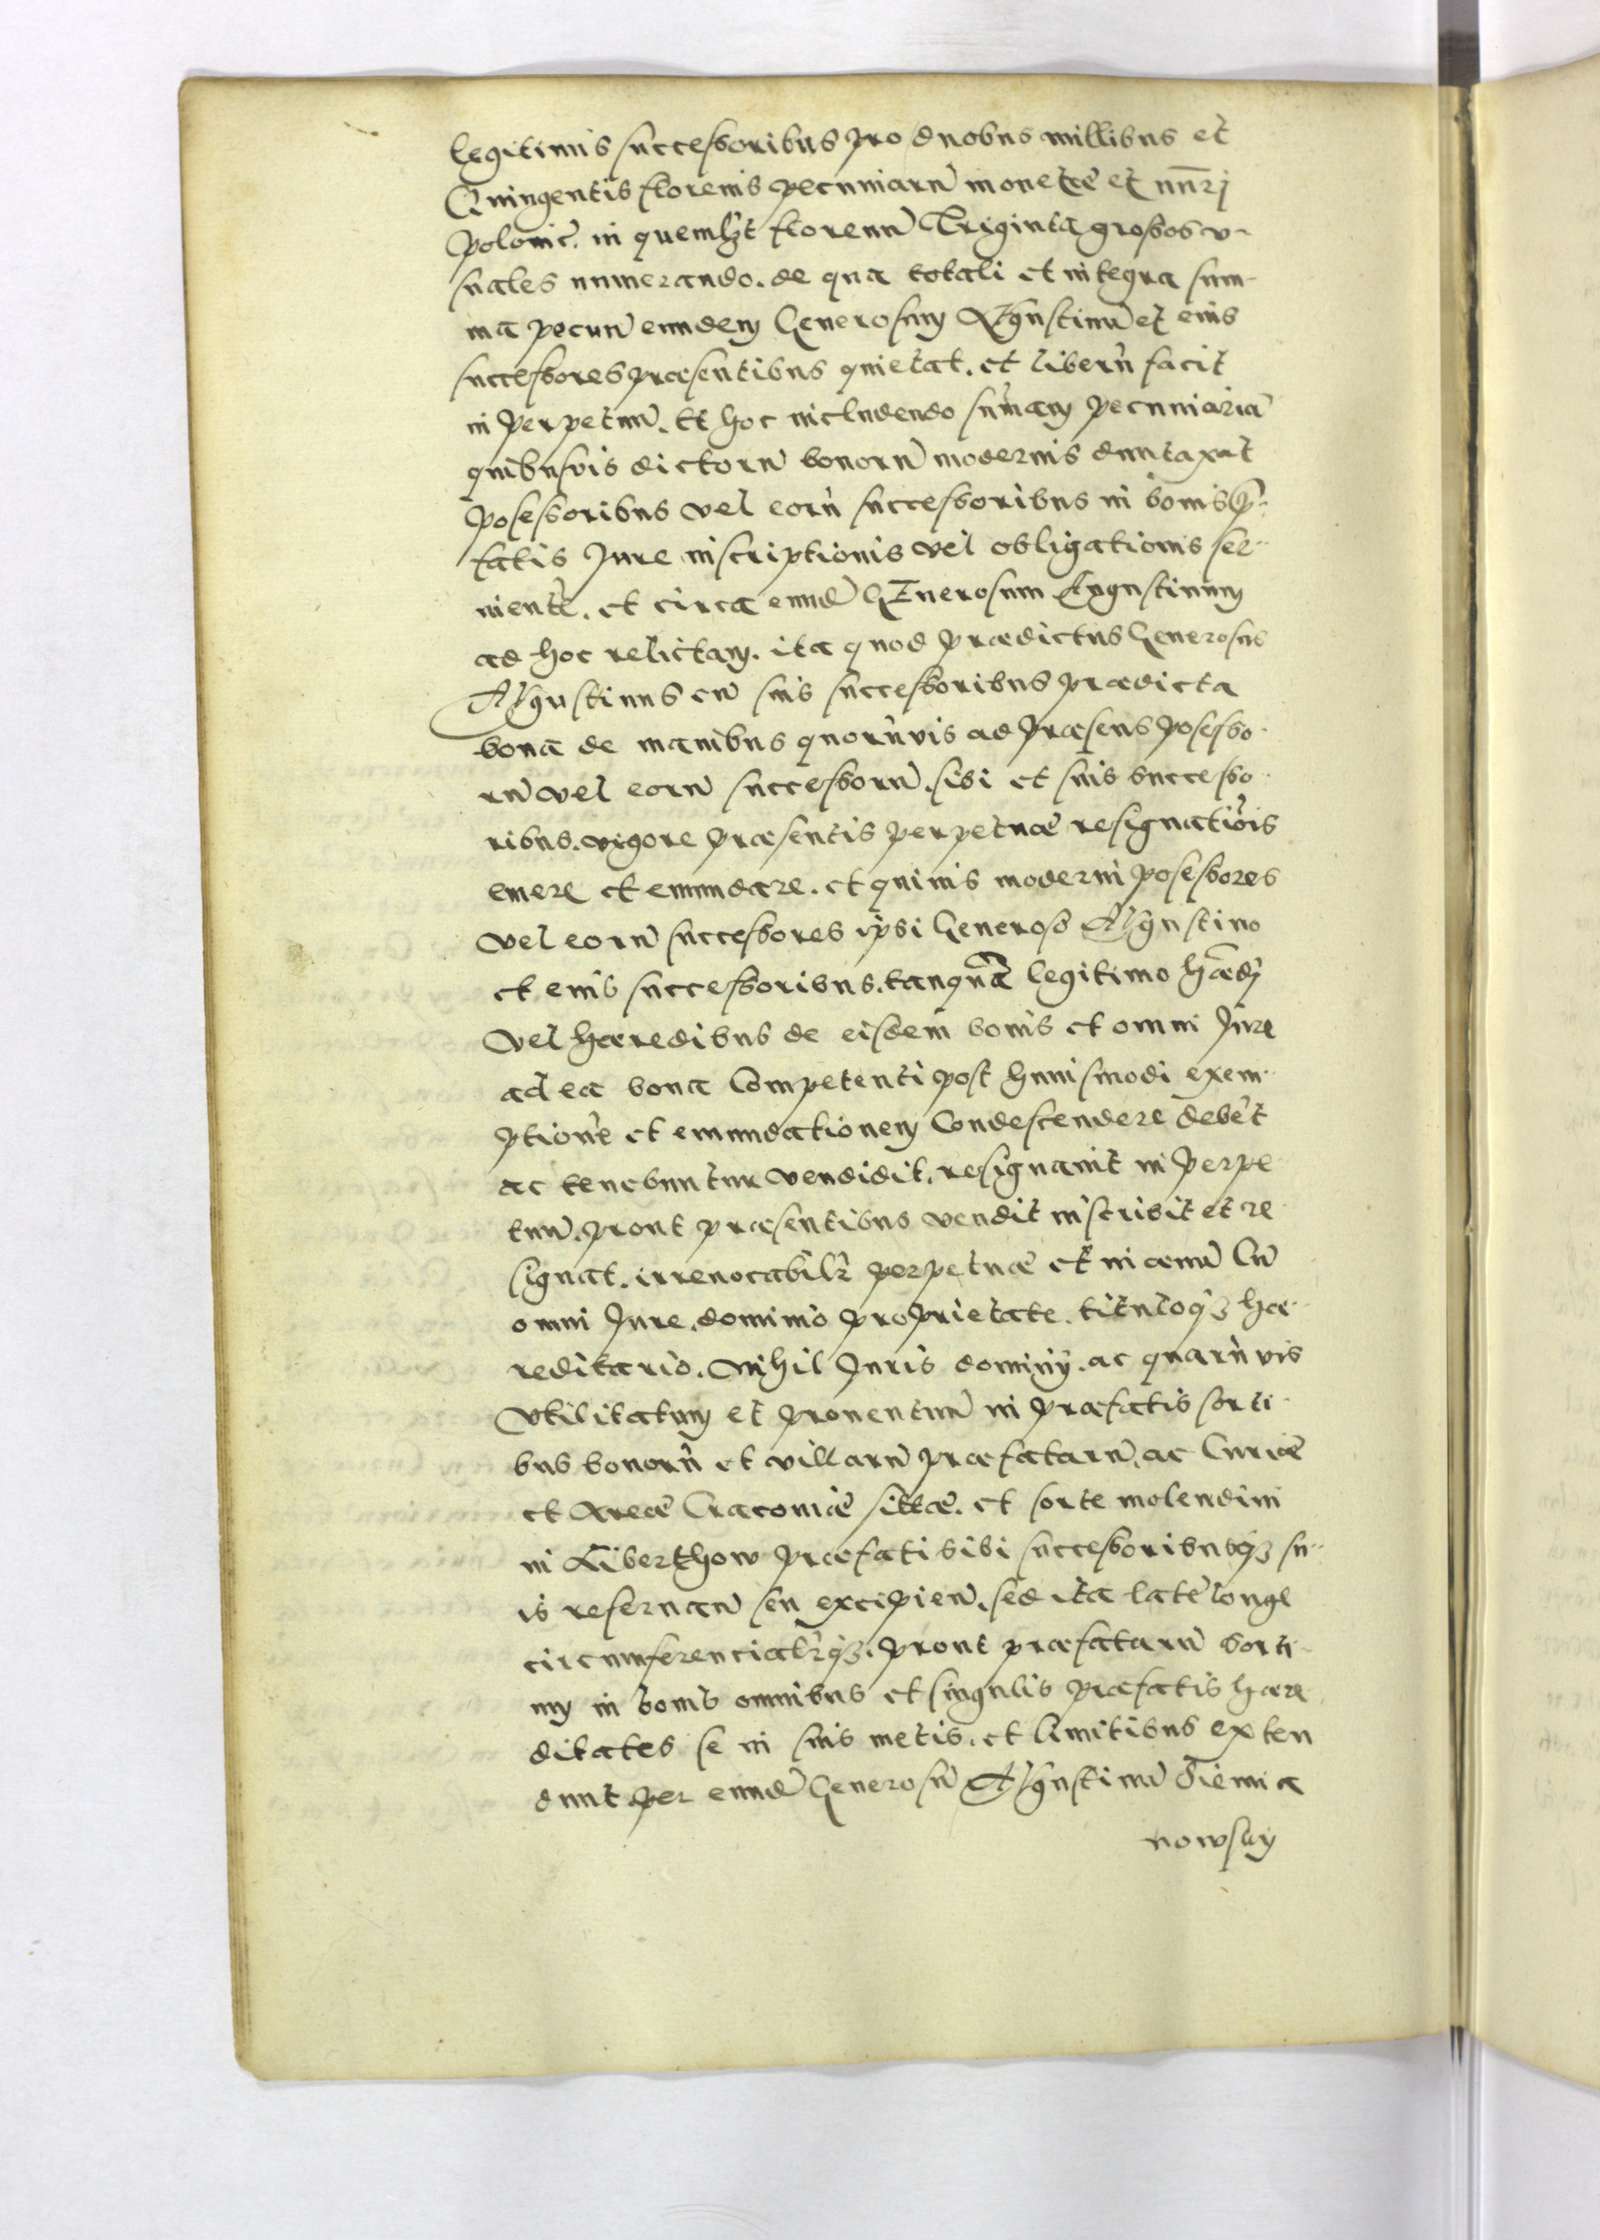 legitimis successoribus pro duobus millibus et
Quingentis florenis pecuniarū monetæ et nūrj
polonic. in quemlꝫt florenū Triginta grossos v-
suales numerando. de qua totali et integra sum-
ma pecun̄ eundem Generosum Augustinū et eius
successores præsentibus quietat. et liberū facit
in perpetuū. Et hoc includendo sum̄am pecuniariā
quibusvis dictorū bonorū modernis duntaxat
posessoribus vel eorū successoribus in bonis p̄-
fatis Jure inscriptionis vel obligationis
et circa eund̄ GEnerosum Augustinum
ad hoc relictam. ita quod prædictus Generosus
Augustinus cū suis successoribus prædicta
bona de manibus quorūvis ad præsens posesso-
rū vel eorū successorū. sibi et suis successo-
ribus. vigore præsentis perpetuæ resignatiōis
emere et emundare. et quiuis moderni posessores
vel eorū successores ipsi Generoso Augustino
et eius successoribus. tanquā legitimo hæedj
vel hæredibus de eisdem bonis et omni Jure
ad ea bona Competenti post huiusmodi exem-
ptionē et emundationem Condescendere debēt
ac tenebuntur vendidit. resignauit in perpe-
tuū. prout præsentibus vendit inscribit et re
signat. irreuocabilr̄ perpetuæ et in æuū Cū
omni Jure. dominio proprietate. tituloqꝫ hæ-
reditario. Nihil Juris dominij. ac quarūvis
vtilitatum et prouentuū in præfatis sorti-
bus bonorū et villarū præfatarū. ac Curiæ
et Areæ Cracouiæ sittæ. et sorte molendini
in Liberthow præfati sibi successoribusqꝫ su-
is reseruan̄ seu excipien̄. sed ita late longe
circumferenciatr̄qꝫ. prout præfatarū sorti-
um in bonis omnibus et singulis præfatis hære
ditates se in suis metis. et limitibus exten
dunt per eund̄ Generosū Augustinū Siemia
nowsky